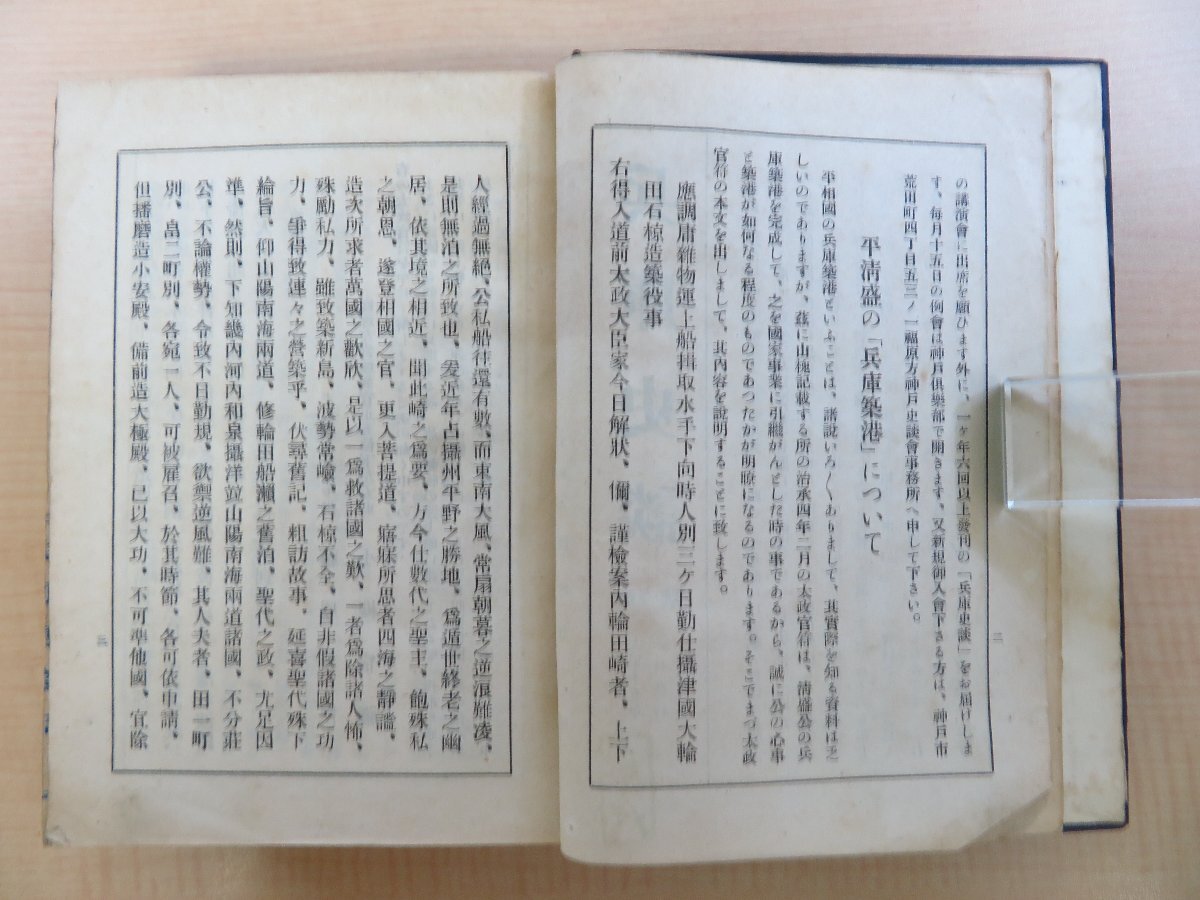 の講演會に出席を願ひます外に、一ヶ年六回以上發刊の「兵庫史談」をお届けしま
す、每月十五日の例會は神戶俱樂部で開きます、又新規御入會下さる方は、神戶市
荒田町四丁目五三ノ一福原方神戶史談會事務所へ申して下さい。
平淸盛の「兵庫築港」について
平相國の兵庫築港といふことは、諸說いろ〱ありまして、其實際を知る資料は乏
しいのでありますが、茲に山槐記載する所の治承四年二月の太政官符は、淸盛公の兵
庫築港を完成して、之を國家事業に引繼がんとした時の事であるから、誠に公の心事
と築港が如何なる程度のものであつたかが明瞭になるのであります。そこでまづ太政
官符の本文を出しまして、其內容を說明することに致します。
應調庸雜物運上船揖取水手下向時人別三ケ日勤仕攝津國大輪
田石椋造築役事
右得入道前太政大臣家今日解狀、儞、謹檢案內輪田崎者、上下
二
人經過無絕、公私船往還有數、而東南大風、常扇朝暮之逆浪難凌、
是則無泊之所致也、爰近年占攝州平野之勝地、爲遁世終老之幽
居、依其境之相近、聞此崎之爲要、方今仕數代之聖主、飽殊私
之朝恩、遂登相國之官、更入菩提道、寤寐所思者四海之靜謐、
造次所求者萬國之歡欣、是以一爲救諸國之歎、一者爲除諸人怖、
殊勵私力、雖致築新島、波勢常嶮、石椋不全、自非假諸國之功
力、爭得致連々之營築乎、伏尋舊記、粗訪故事、延喜聖代殊下
綸旨、仰山陽南海兩道、修輪田船瀨之舊泊、聖代之政、尤足因
準、然則、下知畿內河內和泉攝洋竝山陽南海兩道諸國、不分莊
公、不論權勢、令致不日勤規、欲禦逆風難、其人夫者、田一町
別、畠二町別、各宛一人、可被雇召、於其時節、各可依申請、
但播磨造小安殿、備前造大極殿、已以大功、不可準他國、宜除
三